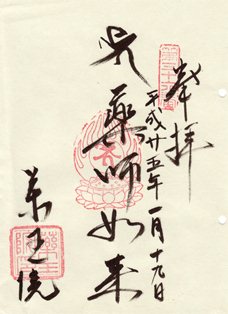 奉拝
平成廿五年 一月十九日
薬師如来
薬王院